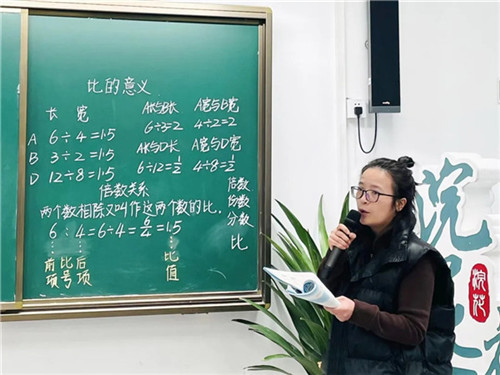 比的意义
长 宽 A长与B长 A宽与B宽
A 6÷4=1.5 6÷3=2 4÷2=2
B 3÷2=1.5 A长与D长 A宽与D宽
D 12÷8=1.5 6÷12=1/2 4÷8=1/2
倍数关系 倍数
两个数相除又叫作这两个数的比. 份数
分数
6:4=6÷4=6/4=1.5 比
前项 比号 后项 比值
浣
浣花